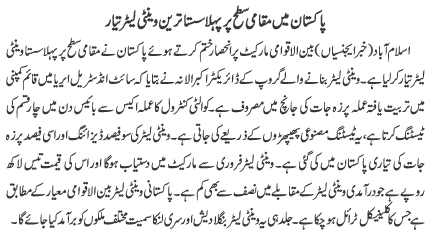 پاکستان میں مقامی سطح پر پہلا سستا ترین وینٹی لیٹر تیار
اسلام آباد (خبر ایجنسیاں) بین الاقوامی مارکیٹ پر انحصار ختم کرتے ہوئے پاکستان نے مقامی سطح پر پہلا سستا وینٹی
لیٹر تیار کر لیا ہے۔ وینٹی لیٹر بنانے والے گروپ کے ڈائریکٹر اکبر الانہ نے بتایا کہ سائٹ انڈسٹریل ایریا میں قائم کمپنی
میں تربیت یافتہ عملہ پرزہ جات کی جانچ میں مصروف ہے۔ کوالٹی کنٹرول کا عملہ اکیس سے بائیس دن میں چار قسم کی
ٹیسٹنگ کرتا ہے، یہ ٹیسٹنگ مصنوعی پھیپھڑوں کے ذریعے کی جاتی ہے۔ وینٹی لیٹر کی سو فیصد ڈیزائننگ اور اسی فیصد پرزہ
جات کی تیاری پاکستان میں کی گئی ہے۔ وینٹی لیٹر فروری سے مارکیٹ میں دستیاب ہوگا اور اس کی قیمت تیس لاکھ
روپے ہے جو درآمدی وینٹی لیٹر کے مقابلے میں نصف سے بھی کم ہے۔ پاکستانی وینٹی لیٹر بین الاقوامی معیار کے مطابق
ہے جس کا کلینیکل ٹرائل ہو چکا ہے۔ جلد ہی یہ وینٹی لیٹر بنگلا دیش اور سری لنکا سمیت مختلف ملکوں کو برآمد کیا جائے گا۔